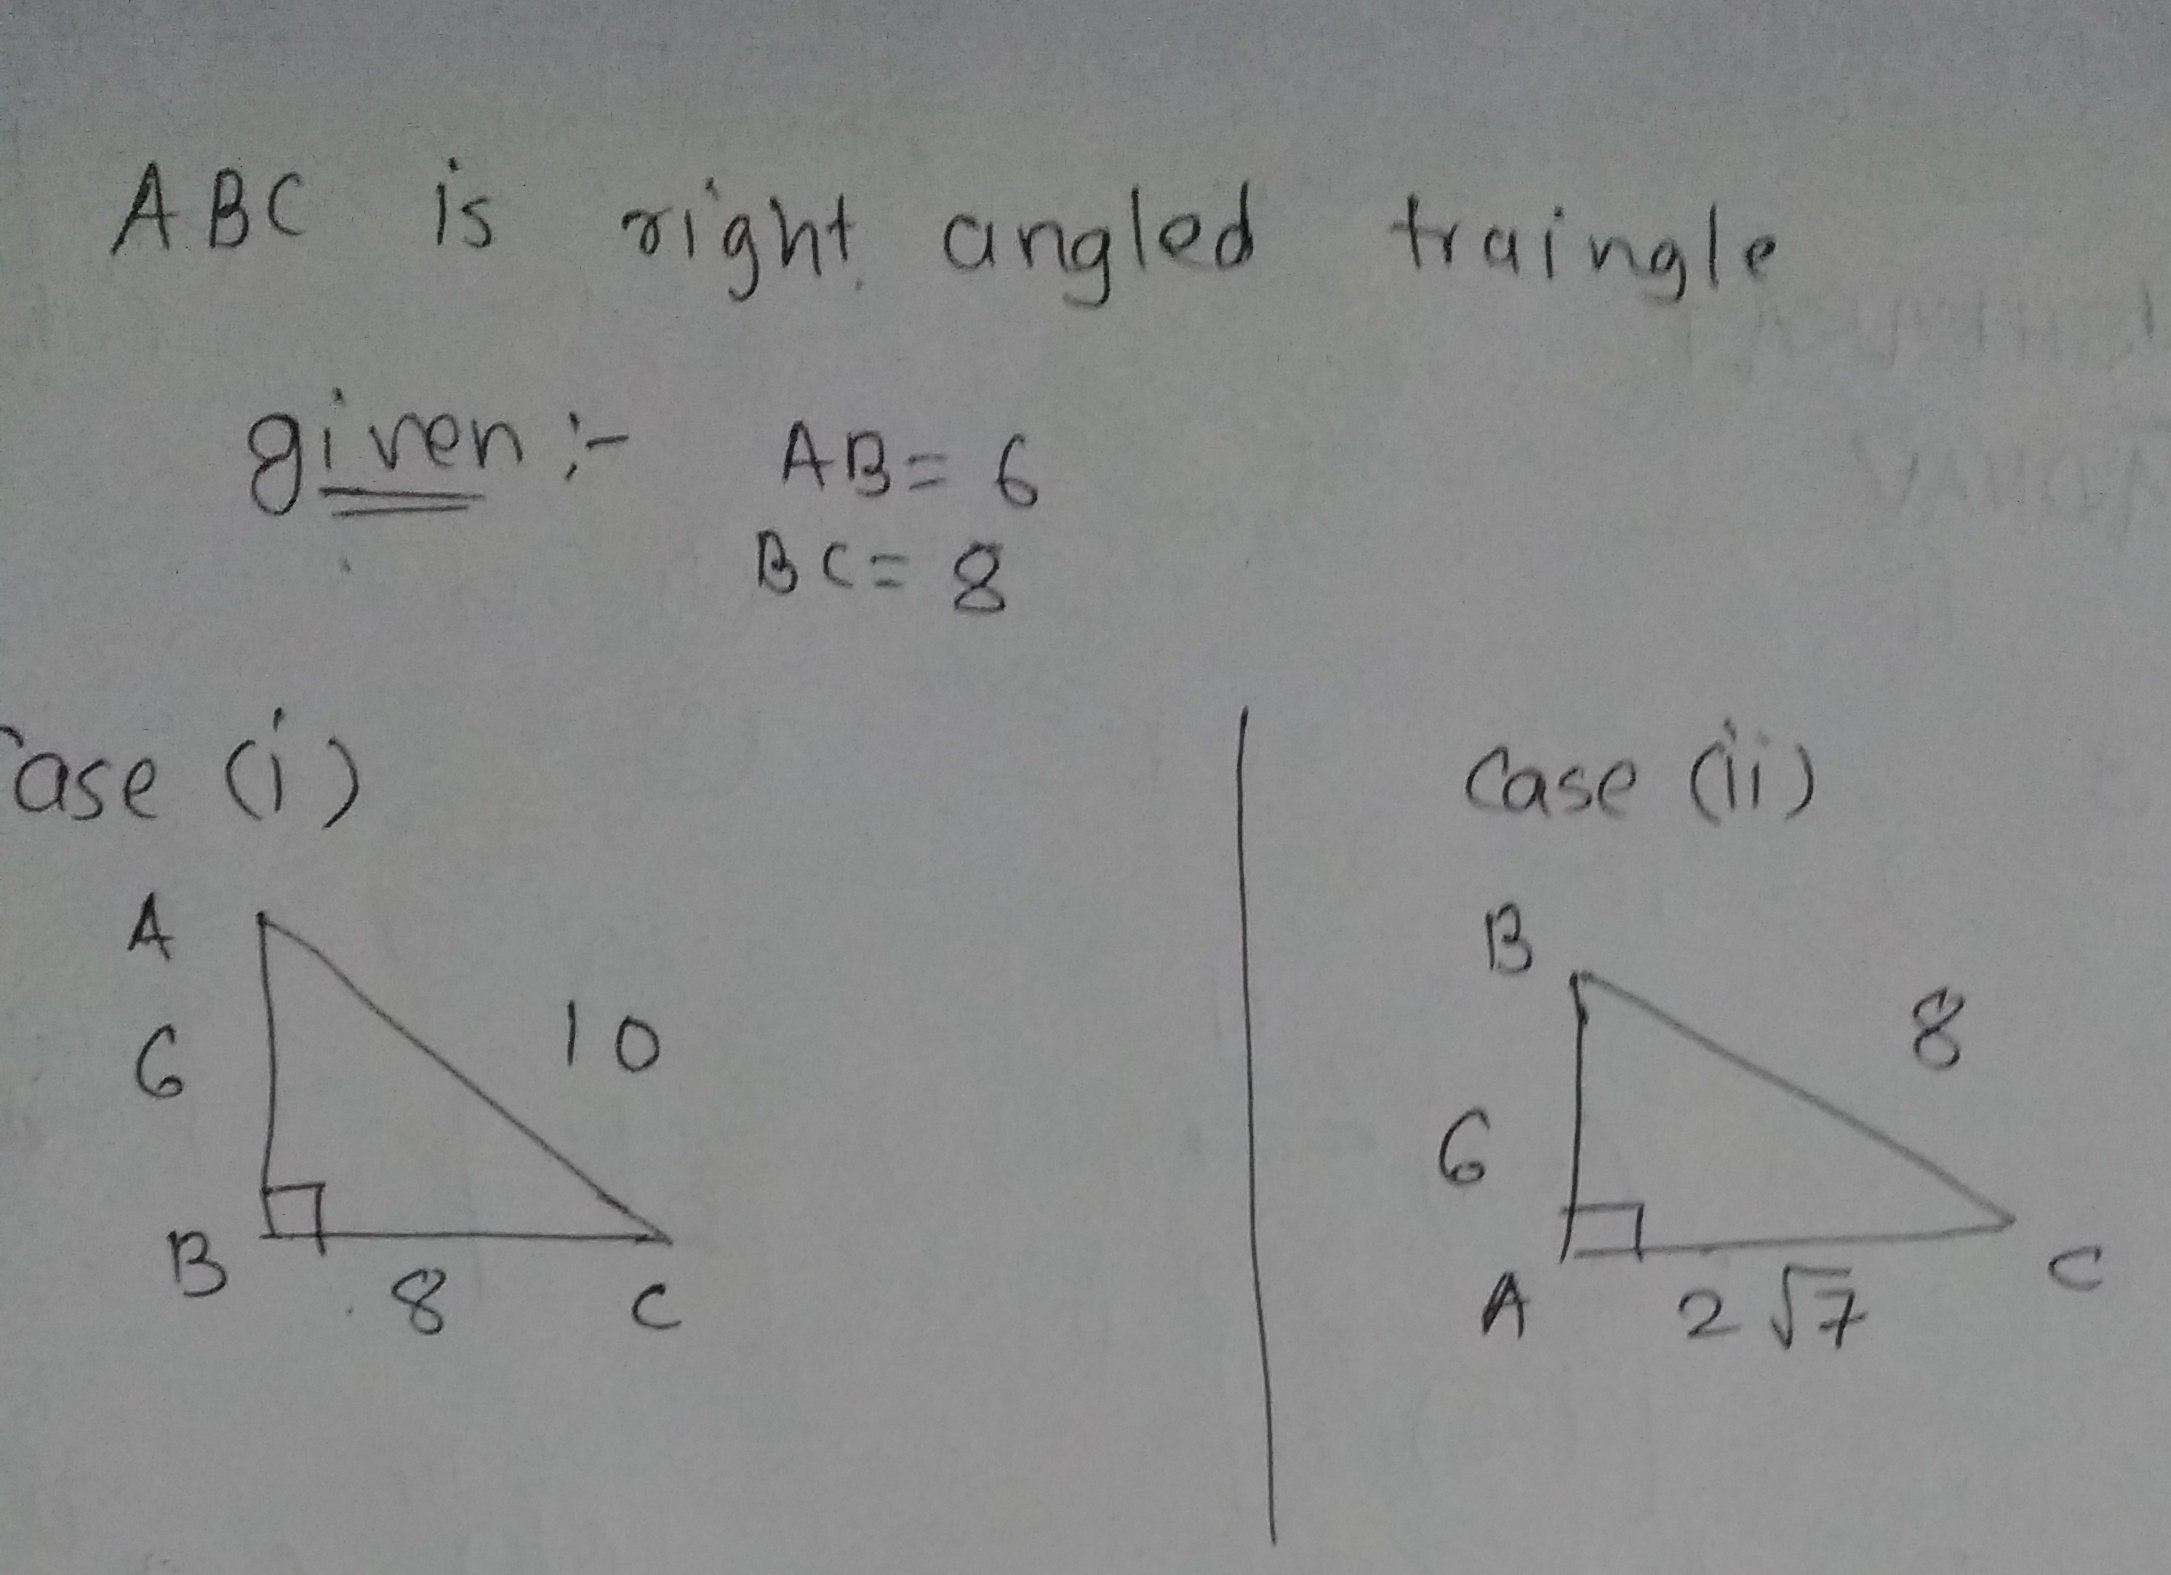 ABC is right angled traingle
given :- AB = 6
BC = 8
Case (i)
A
6
10
B
8
C
Case (ii)
B
8
6
A
2√7
C